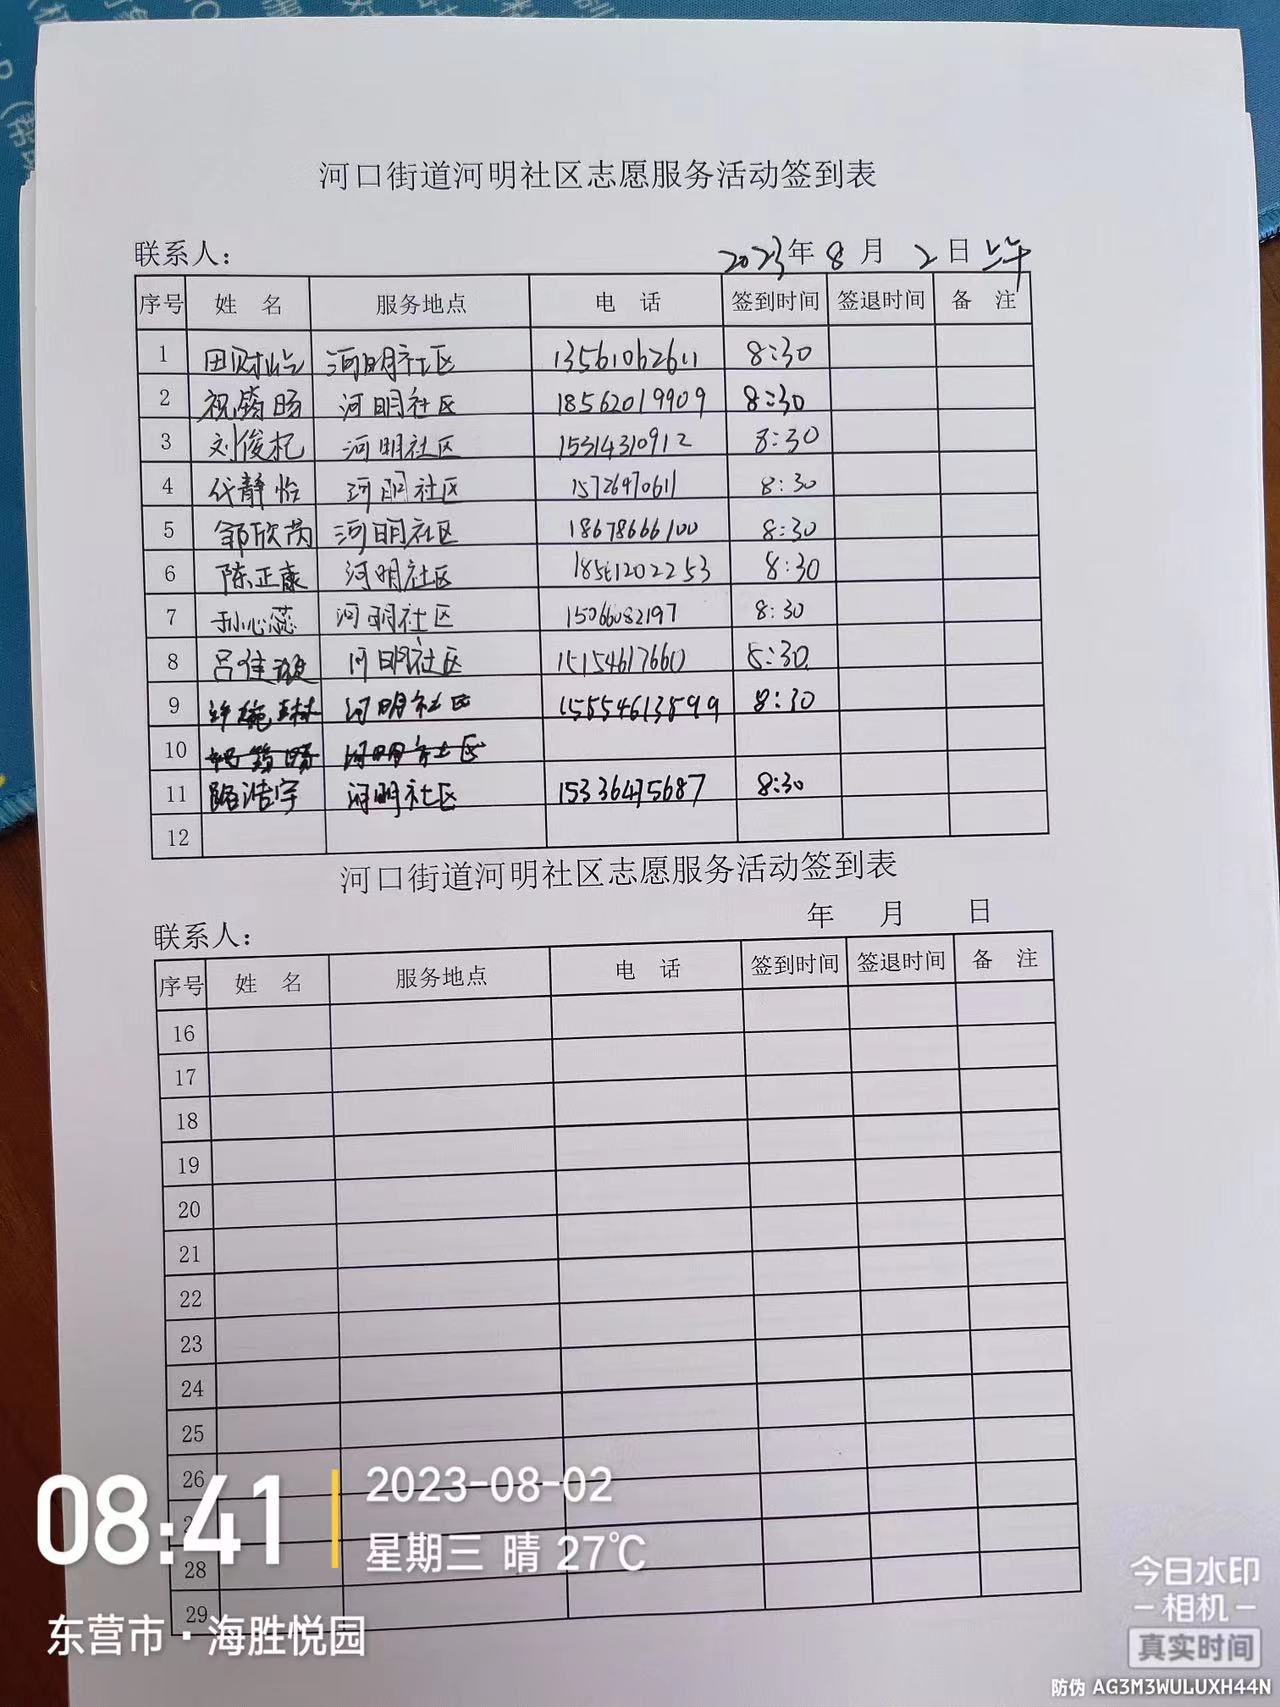 河口街道河明社区志愿服务活动签到表
联系人： 2023年 8 月 2 日 上午
序号 姓 名 服务地点 电 话 签到时间 签退时间 备 注
1 田财屹 河明社区 13561062611 8:30
2 祝筠旸 河明社区 18562019909 8:30
3 刘俊杞 河明社区 15314310912 8:30
4 代静怡 河明社区 15726970611 8:30
5 邹欣芮 河明社区 18678666100 8:30
6 陈正康 河明社区 18561202253 8:30
7 孙心蕊 河明社区 15066082197 8:30
8 吕佳璇 河明社区 15154617660 8:30
9 河明社区 15554613599 8:30
10 河明社区
11 路浩宇 河明社区 15336475687 8:30
12
河口街道河明社区志愿服务活动签到表
联系人： 年 月 日
序号 姓 名 服务地点 电 话 签到时间 签退时间 备 注
16
17
18
19
20
21
22
23
24
25
26
28
29
08:41
2023-08-02
星期三 晴 27℃
东营市·海胜悦园
今日水印
-相机-
真实时间
防伪 AG3M3WULUXH44N